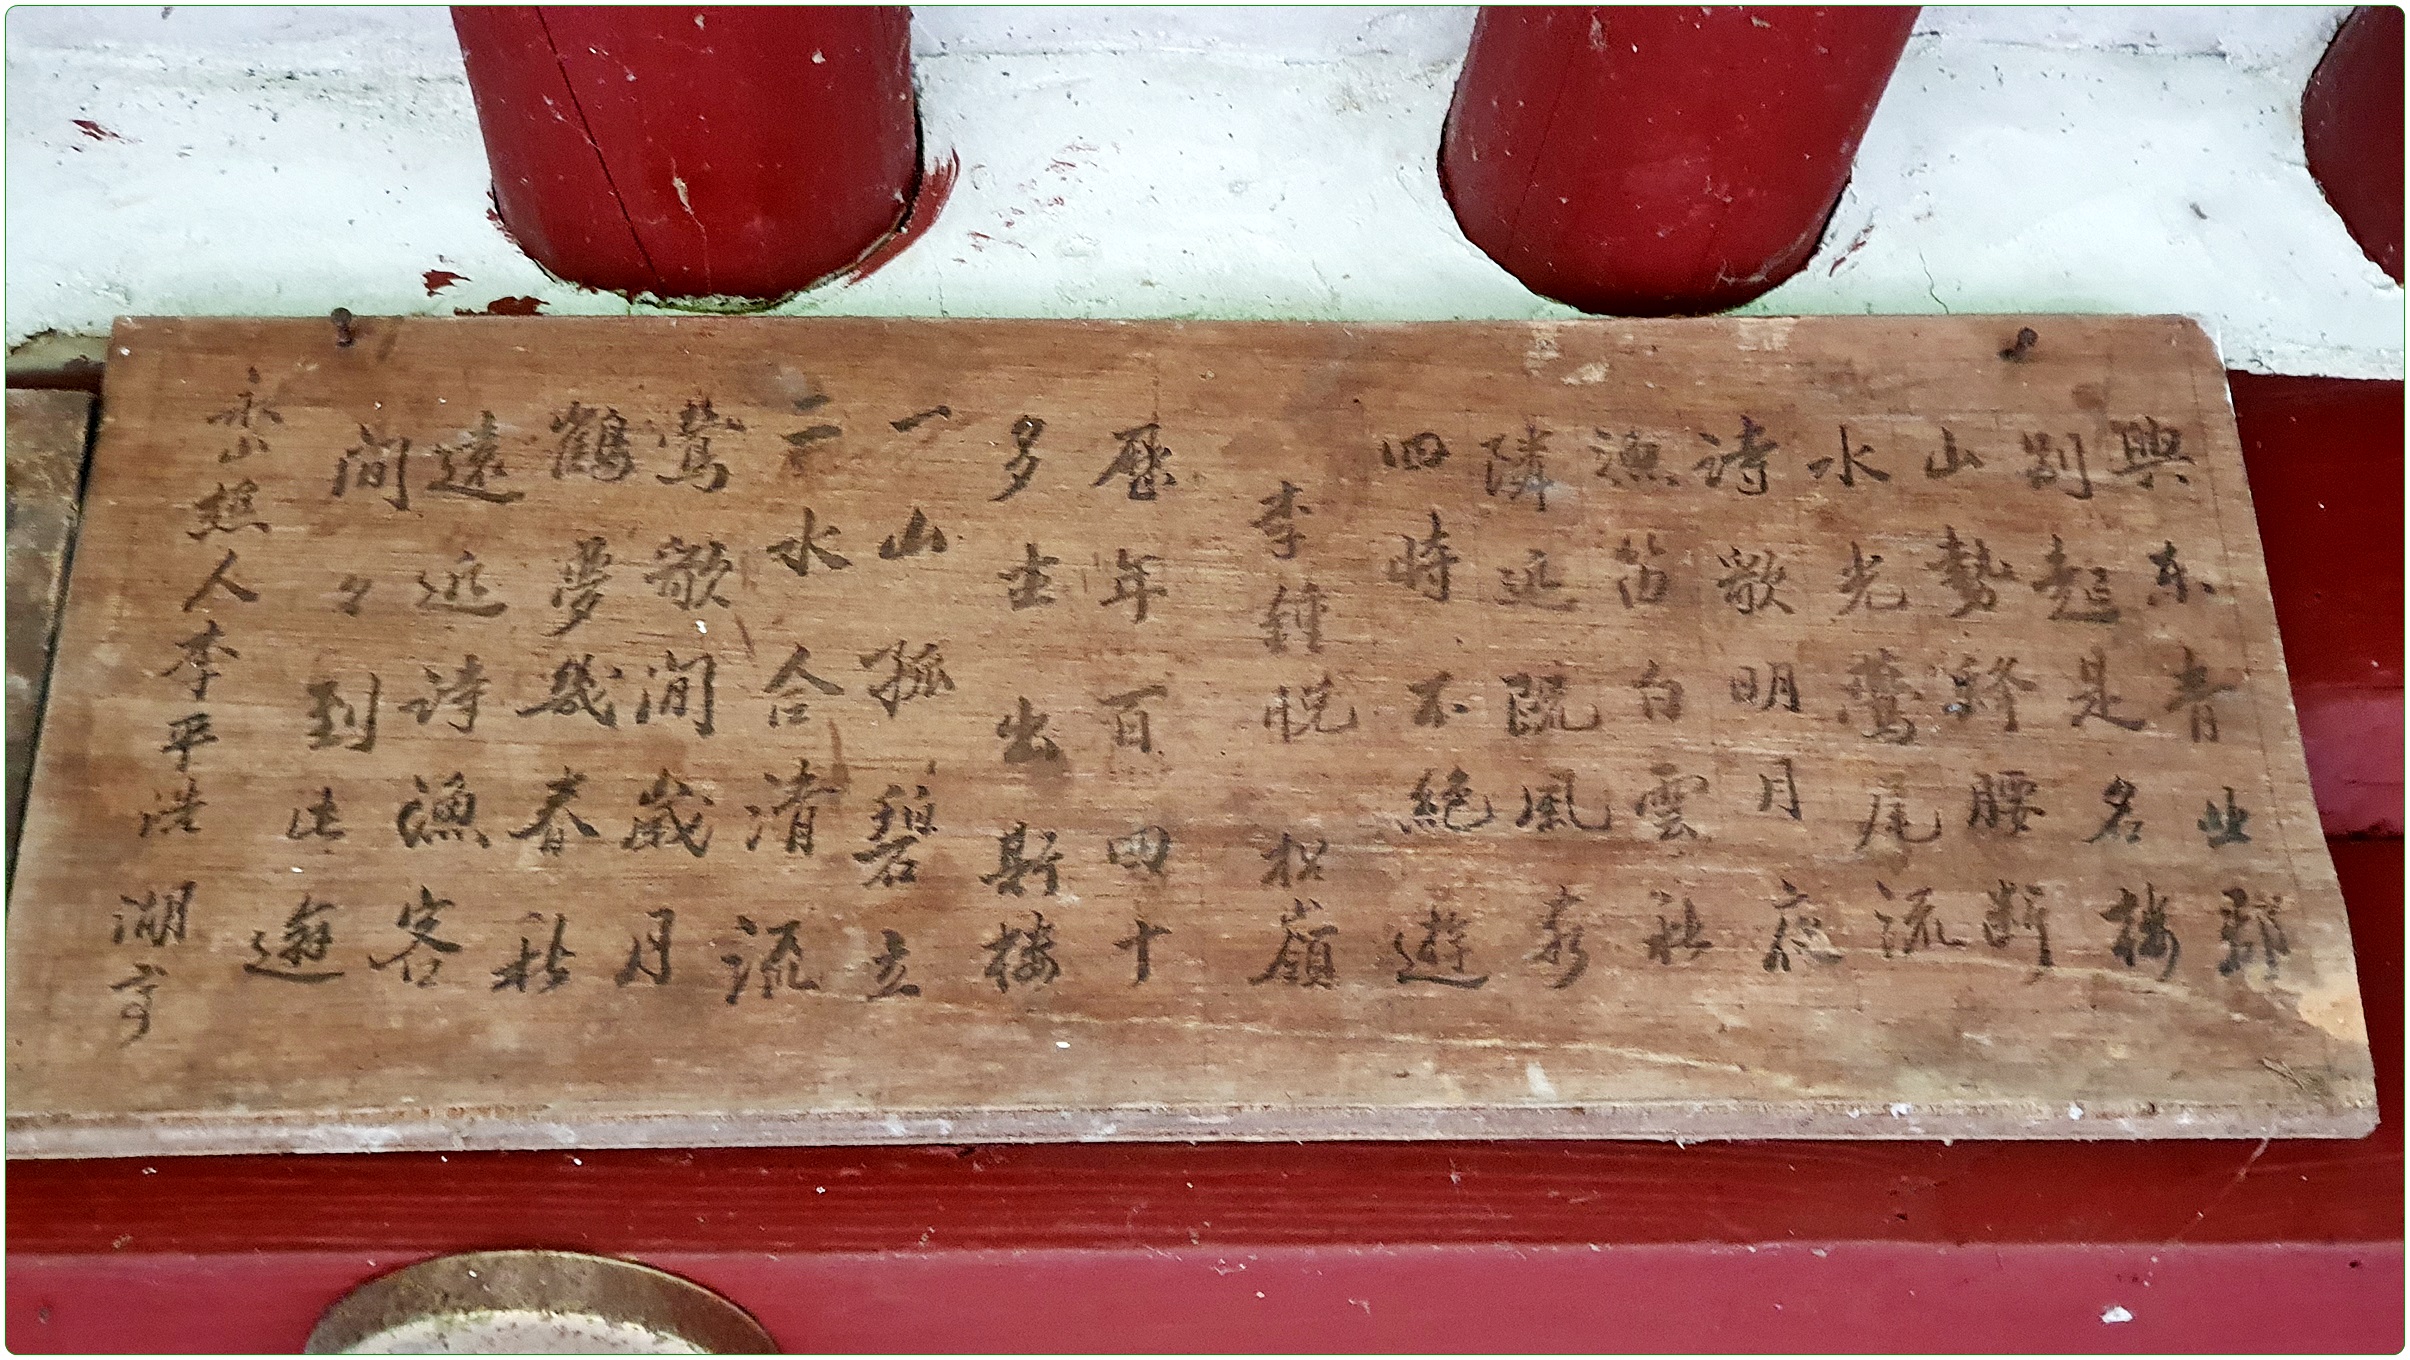 興东青丘郡
別起是名楼
山勢終腰断
水光鶯尾流
詩歌明月夜
漁笛白雲秋
隣近既風素
四時不絶遊
李鍾悦 松嶺
歴年百四十
多士出斯楼
一山孤碧立
二水合清流
鶯歌澗歲月
鶴夢幾春秋
遠近詩漁客
間々到此遊
永山樵人李平浩 湖亭